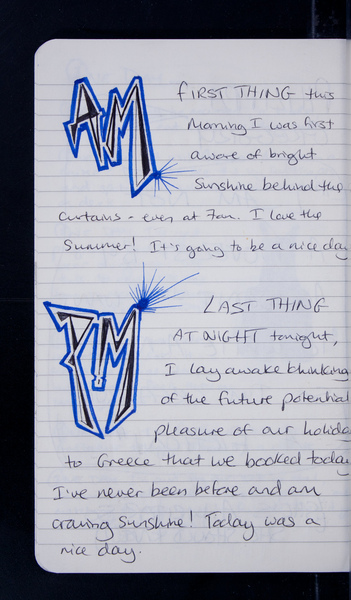 AM
FIRST THING this
Morning I was first
aware of bright
Sunshine behind the
curtains - even at 7am. I love the
Summer! It's going to be a nice day
PM
LAST THING
AT NIGHT tonight,
I lay awake thinking
of the future potential
pleasure of our holida
to Greece that we booked today
I've never been before and am
craving sunshine! Today was a
nice day.